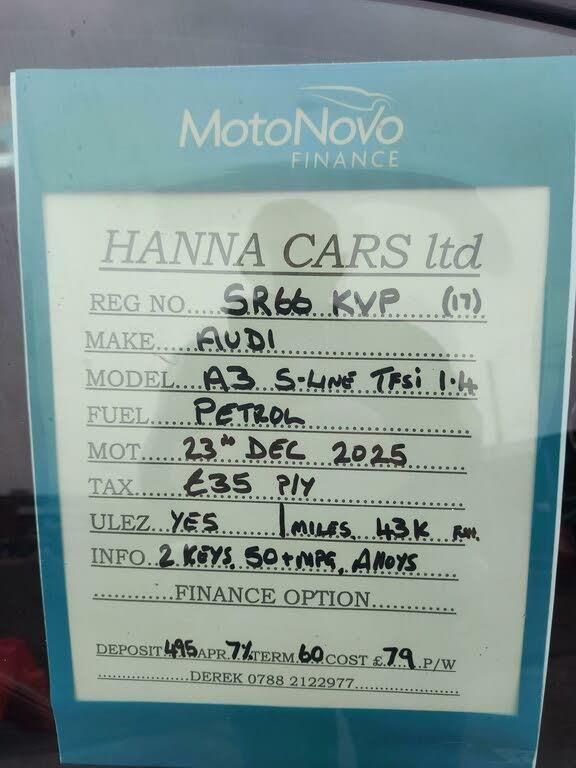 MotoNovo
FINANCE
HANNA CARS ltd
REG NO....SR66 KVP (17)
MAKE....AUDI
MODEL...A3 S-LINE TFSi 1.4
FUEL.....PETROL
MOT.....23RD DEC 2025
TAX......£35 P/Y
ULEZ..YES | MILES. 43K
INFO..2 KEYS, 50+MPG, Alloys
.........FINANCE OPTION.........
DEPOSIT 495 APR. 7% TERM 60 COST £79 .P/W
...............DEREK 0788 2122977...............